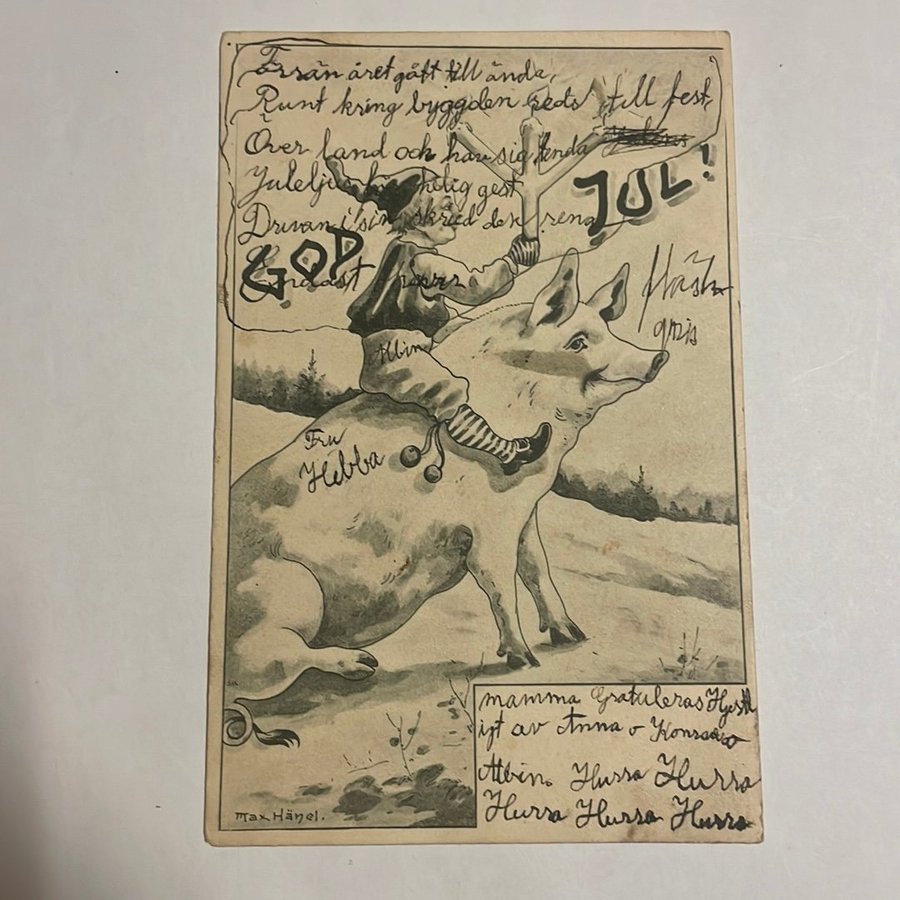 Förrän året gått till ända,
Runt kring bygden reds till fest,
Över land och hav sig
Juleljus helig gest
Drivan i sin skrud den rena
GOD JUL!
gris
Albin
Fru
Hebba
mamma Gratuleras Hjertl
igt av Anna o
Albin. Hurra Hurra
Hurra Hurra Hurra
Max Hänel.